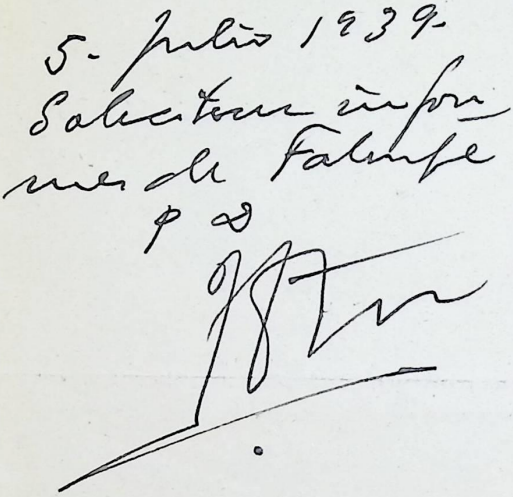 5- Julio 1939-
Soliciten infor
mes de Falange
P D